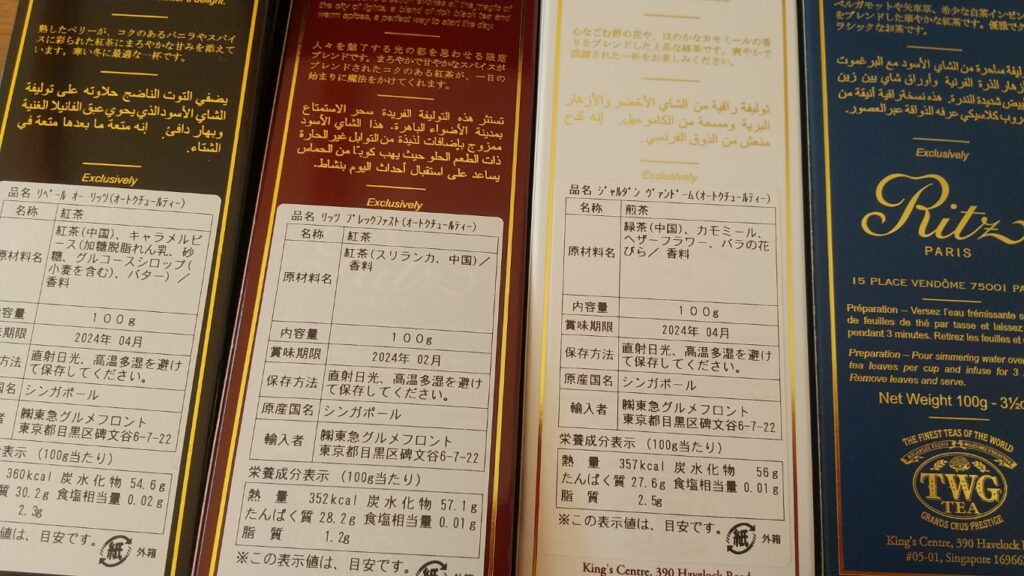 熟したベリーが、コクのあるバニラやスパイ
スに彩られた紅茶にまろやかな甘みを添えて
います。寒い冬に最適な一杯です。
يضفي التوت الناضج حلاوته على توليفة
الشاي الأسود الذي يحوي عبق الفانيلا الغنية
وبهار دافئ. إنه متعة ما بعدها متعة في
الشتاء.
Exclusively
品名 リペール オー リッツ(オートクチュールティー)
名称 紅茶
原材料名 紅茶(中国)、キャラメルピ
ース(加糖脱脂れん乳、砂
糖、グルコースシロップ(
小麦を含む)、バター)／
香料
内容量 100g
味期限 2024年 04月
方法 直射日光、高温多湿を避け
て保存してください。
国名 シンガポール
者 ㈱東急グルメフロント
東京都目黒区碑文谷6-7-22
分表示 (100g当たり)
360kcal 炭水化物 54.6g
質 30.2g 食塩相当量 0.02g
2.3g
示値は、目安です。 紙 外箱
the city of lights, a blend of black tea and
warm spices, a perfect way to start the day.
人々を魅了する光の都を思わせる限定
ブレンドです。まろやかで甘やかなスパイスが
ブレンドされたコクのある紅茶が、一日の
始まりに魔法をかけてくれます。
تستثر هذه التوليفة الفريدة سحر الاستمتاع
بمدينة الأضواء الباهرة. هذا الشاي الأسود
ممزوج بإضافات لذيذة من التوابل غير الحارة
ذات الطعم الحلو حيث يهب كوبًا من الحماس
يساعد على استقبال أحداث اليوم بنشاط.
Exclusively
品名 リッツ ブレックファスト(オートクチュールティー)
名称 紅茶
原材料名 紅茶(スリランカ、中国)／
香料
内容量 100g
賞味期限 2024年 02月
保存方法 直射日光、高温多湿を避け
て保存してください。
原産国名 シンガポール
輸入者 ㈱東急グルメフロント
東京都目黒区碑文谷6-7-22
栄養成分表示 (100g当たり)
熱量 352kcal 炭水化物 57.1g
たんぱく質 28.2g 食塩相当量 0.01g
脂質 1.2g
※この表示値は、目安です。 紙 外箱
心なごむ野の花や、ほのかなカモミールの香
りをブレンドした上品な緑茶です。爽やかで
洗練された一杯をお楽しみください。
توليفة راقية من الشاي الأخضر والأزهار
البرية ومسحة من الكاموميل. إنه قدح
منعش من الذوق الفرنسي.
Exclusively
品名 ジャルダン ヴァンドーム(オートクチュールティー)
名称 煎茶
原材料名 緑茶(中国)、カモミール、
ヘザーフラワー、バラの花
びら／ 香料
内容量 100g
賞味期限 2024年 04月
保存方法 直射日光、高温多湿を避け
て保存してください。
原産国名 シンガポール
輸入者 ㈱東急グルメフロント
東京都目黒区碑文谷6-7-22
栄養成分表示 (100g当たり)
熱量 357kcal 炭水化物 56g
たんぱく質 27.6g 食塩相当量 0.01g
脂質 2.5g
※この表示値は、目安です。 紙 外箱
King's Centre, 390 Havelock Road
ベルガモットや矢車草、希少な白茶
をブレンドした華やかな紅茶です。
ラシックなお茶です。
Exclusively
Ritz
PARIS
15 PLACE VENDÔME 75001 PA
Préparation – Versez l'eau frémissante s
de feuilles de thé par tasse et laissez
pendant 3 minutes. Retirez les feuilles et s
Preparation – Pour simmering water over
tea leaves per cup and infuse for 3
Remove leaves and serve.
Net Weight 100g - 3½o
THE FINEST TEAS OF THE WORLD
TWG
TEA
GRANDS CRUS PRESTIGE
King's Centre, 390 Havelock
#05-01, Singapore 16966